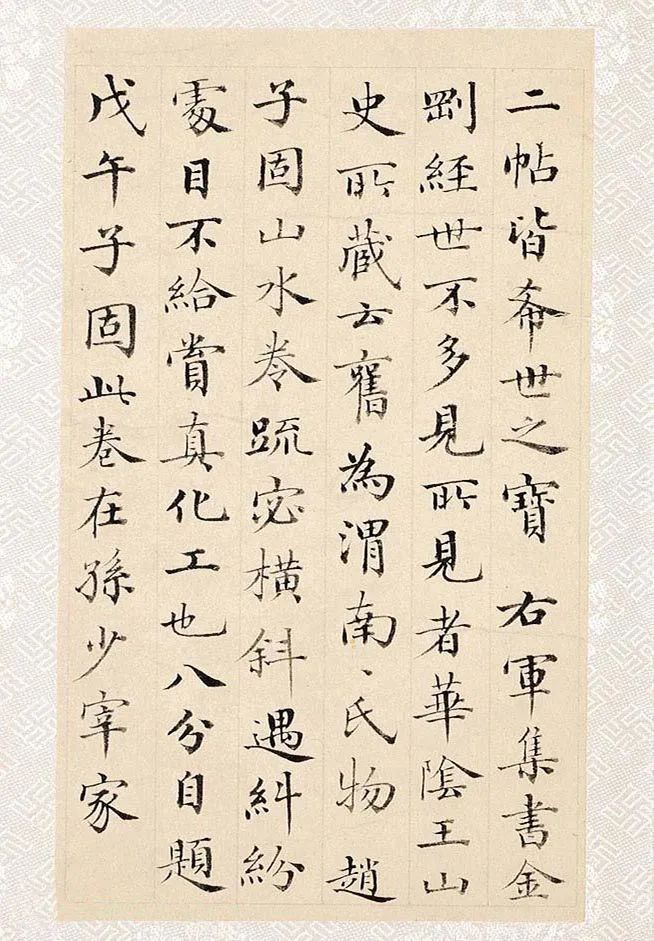 二帖皆希世之寶 右軍集書金
剛經世不多見所見者華陰王山
史所藏云舊為渭南〻氏物 趙
子固山水卷疏宓橫斜遇糾紛
處目不給賞真化工也八分自題
戊午子固此卷在孫少宰家